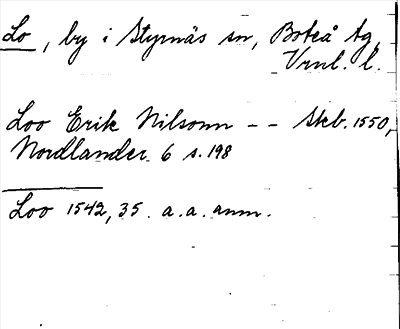 Lo, by i Styrnäs sn, Boteå tg,
Vrnl. l.
Loo Erik Nilsonn -- Skb. 1550,
Nordlander 6 s. 198
Loo 1542, 35. a.a. anm.